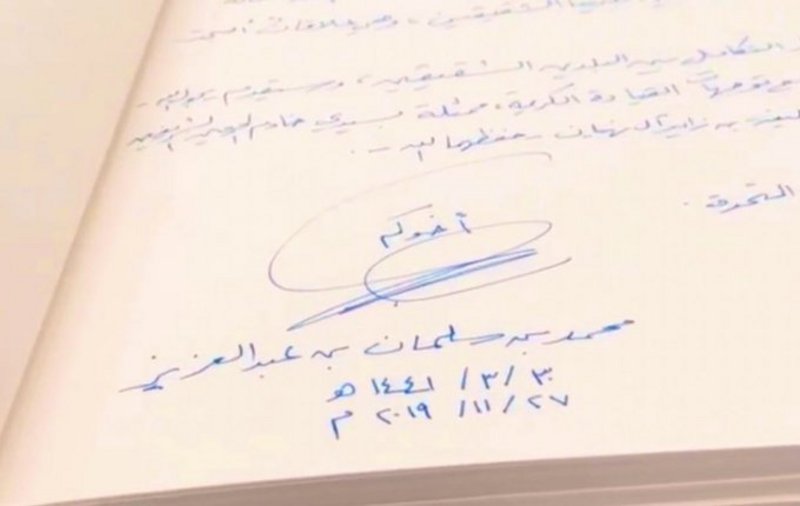 الشقيقين ، وهي علاقات
التكامل بين البلدين الشقيقين ، و
القيادة الكريمة، ممثلة بسيدي خادم الحرمين الشريفين
بن زايد آل نهيان - حفظهما الله - .
أخوكم
محمد بن سلمان بن عبدالعزيز
٣٠ / ٣ / ١٤٤١ هـ
٢٧ / ١١ / ٢٠١٩ م